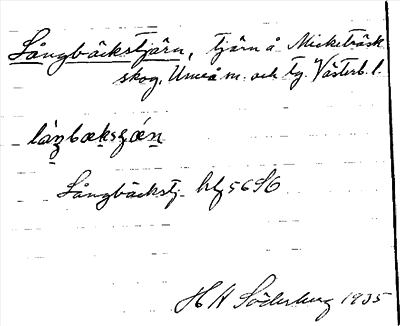 Långbäckstjärn, tjärn å Micketräsk
skog, Umeå m. och tg. Västerb. l.
Långbäckstj. hlg 56 S6
H H Söderberg 1935